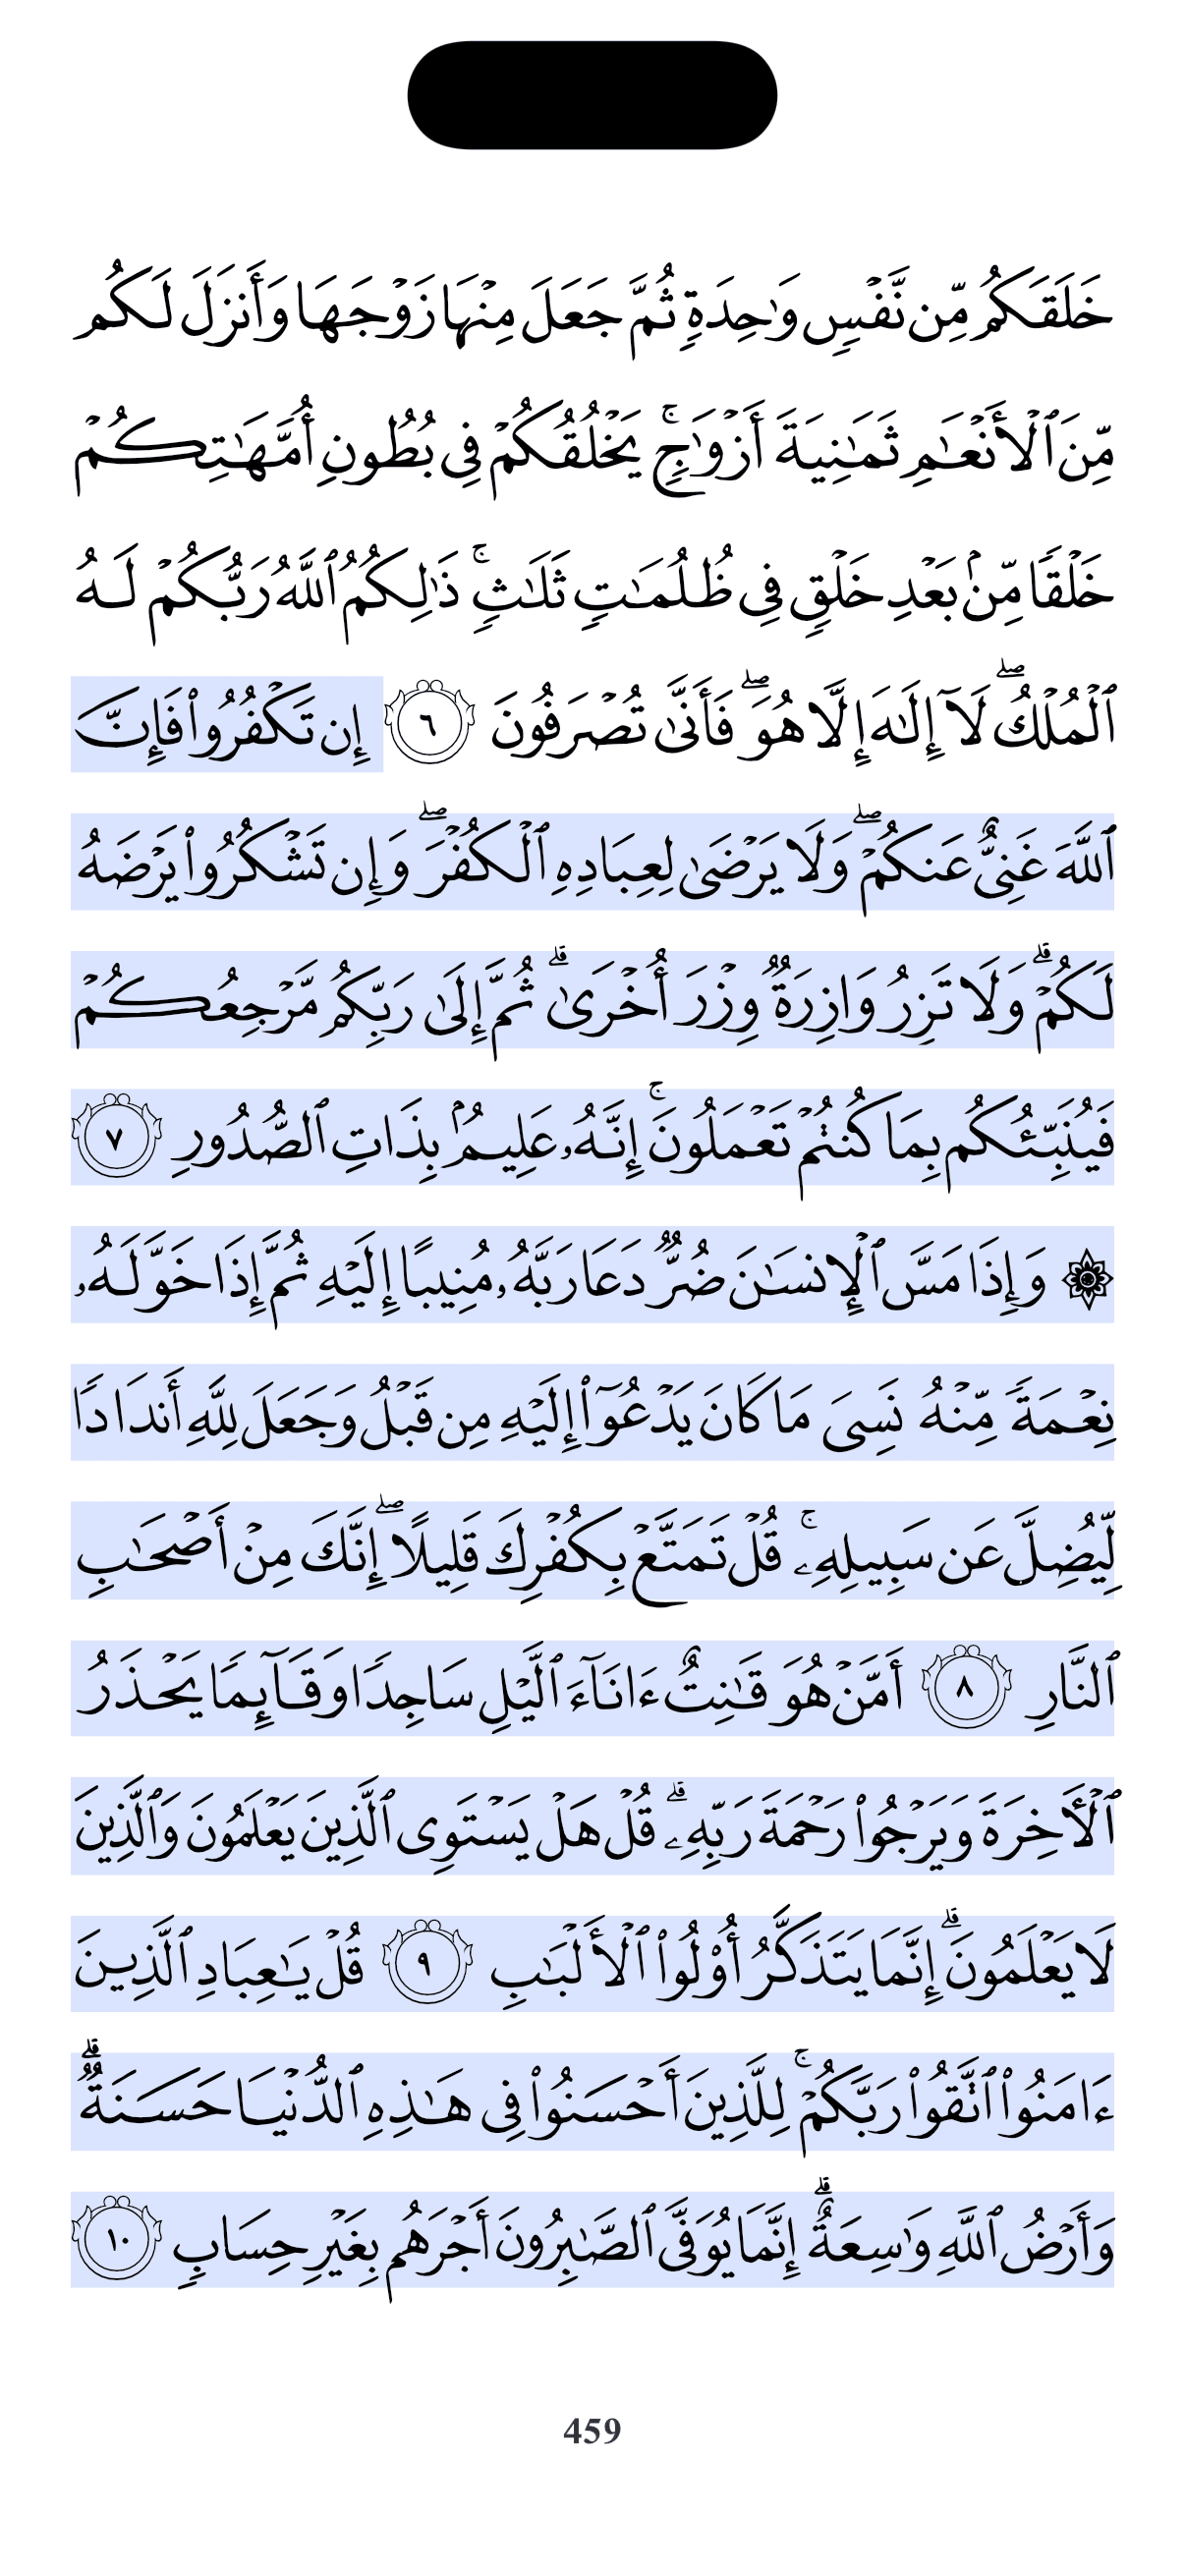 خَلَقَكُم مِّن نَّفۡسٖ وَٰحِدَةٖ ثُمَّ جَعَلَ مِنۡهَا زَوۡجَهَا وَأَنزَلَ لَكُم
مِّنَ ٱلۡأَنۡعَٰمِ ثَمَٰنِيَةَ أَزۡوَٰجٖۚ يَخۡلُقُكُمۡ فِي بُطُونِ أُمَّهَٰتِكُمۡ
خَلۡقٗا مِّنۢ بَعۡدِ خَلۡقٖ فِي ظُلُمَٰتٖ ثَلَٰثٖۚ ذَٰلِكُمُ ٱللَّهُ رَبُّكُمۡ لَهُ
ٱلۡمُلۡكُۖ لَآ إِلَٰهَ إِلَّا هُوَۖ فَأَنَّىٰ تُصۡرَفُونَ ٦ إِن تَكۡفُرُواْ فَإِنَّ
ٱللَّهَ غَنِيٌّ عَنكُمۡۖ وَلَا يَرۡضَىٰ لِعِبَادِهِ ٱلۡكُفۡرَۖ وَإِن تَشۡكُرُواْ يَرۡضَهُ
لَكُمۡۗ وَلَا تَزِرُ وَازِرَةٞ وِزۡرَ أُخۡرَىٰۗ ثُمَّ إِلَىٰ رَبِّكُم مَّرۡجِعُكُمۡ
فَيُنَبِّئُكُم بِمَا كُنتُمۡ تَعۡمَلُونَۚ إِنَّهُۥ عَلِيمُۢ بِذَاتِ ٱلصُّدُورِ ٧
۞ وَإِذَا مَسَّ ٱلۡإِنسَٰنَ ضُرّٞ دَعَا رَبَّهُۥ مُنِيبًا إِلَيۡهِ ثُمَّ إِذَا خَوَّلَهُۥ
نِعۡمَةٗ مِّنۡهُ نَسِيَ مَا كَانَ يَدۡعُوٓاْ إِلَيۡهِ مِن قَبۡلُ وَجَعَلَ لِلَّهِ أَندَادٗا
لِّيُضِلَّ عَن سَبِيلِهِۦۚ قُلۡ تَمَتَّعۡ بِكُفۡرِكَ قَلِيلًاۖ إِنَّكَ مِنۡ أَصۡحَٰبِ
ٱلنَّارِ ٨ أَمَّنۡ هُوَ قَٰنِتٌ ءَانَآءَ ٱلَّيۡلِ سَاجِدٗا وَقَآئِمٗا يَحۡذَرُ
ٱلۡأٓخِرَةَ وَيَرۡجُواْ رَحۡمَةَ رَبِّهِۦۗ قُلۡ هَلۡ يَسۡتَوِي ٱلَّذِينَ يَعۡلَمُونَ وَٱلَّذِينَ
لَا يَعۡلَمُونَۗ إِنَّمَا يَتَذَكَّرُ أُوْلُواْ ٱلۡأَلۡبَٰبِ ٩ قُلۡ يَٰعِبَادِ ٱلَّذِينَ
ءَامَنُواْ ٱتَّقُواْ رَبَّكُمۡۚ لِلَّذِينَ أَحۡسَنُواْ فِي هَٰذِهِ ٱلدُّنۡيَا حَسَنَةٞۗ
وَأَرۡضُ ٱللَّهِ وَٰسِعَةٌۗ إِنَّمَا يُوَفَّى ٱلصَّٰبِرُونَ أَجۡرَهُم بِغَيۡرِ حِسَابٖ ١٠
459